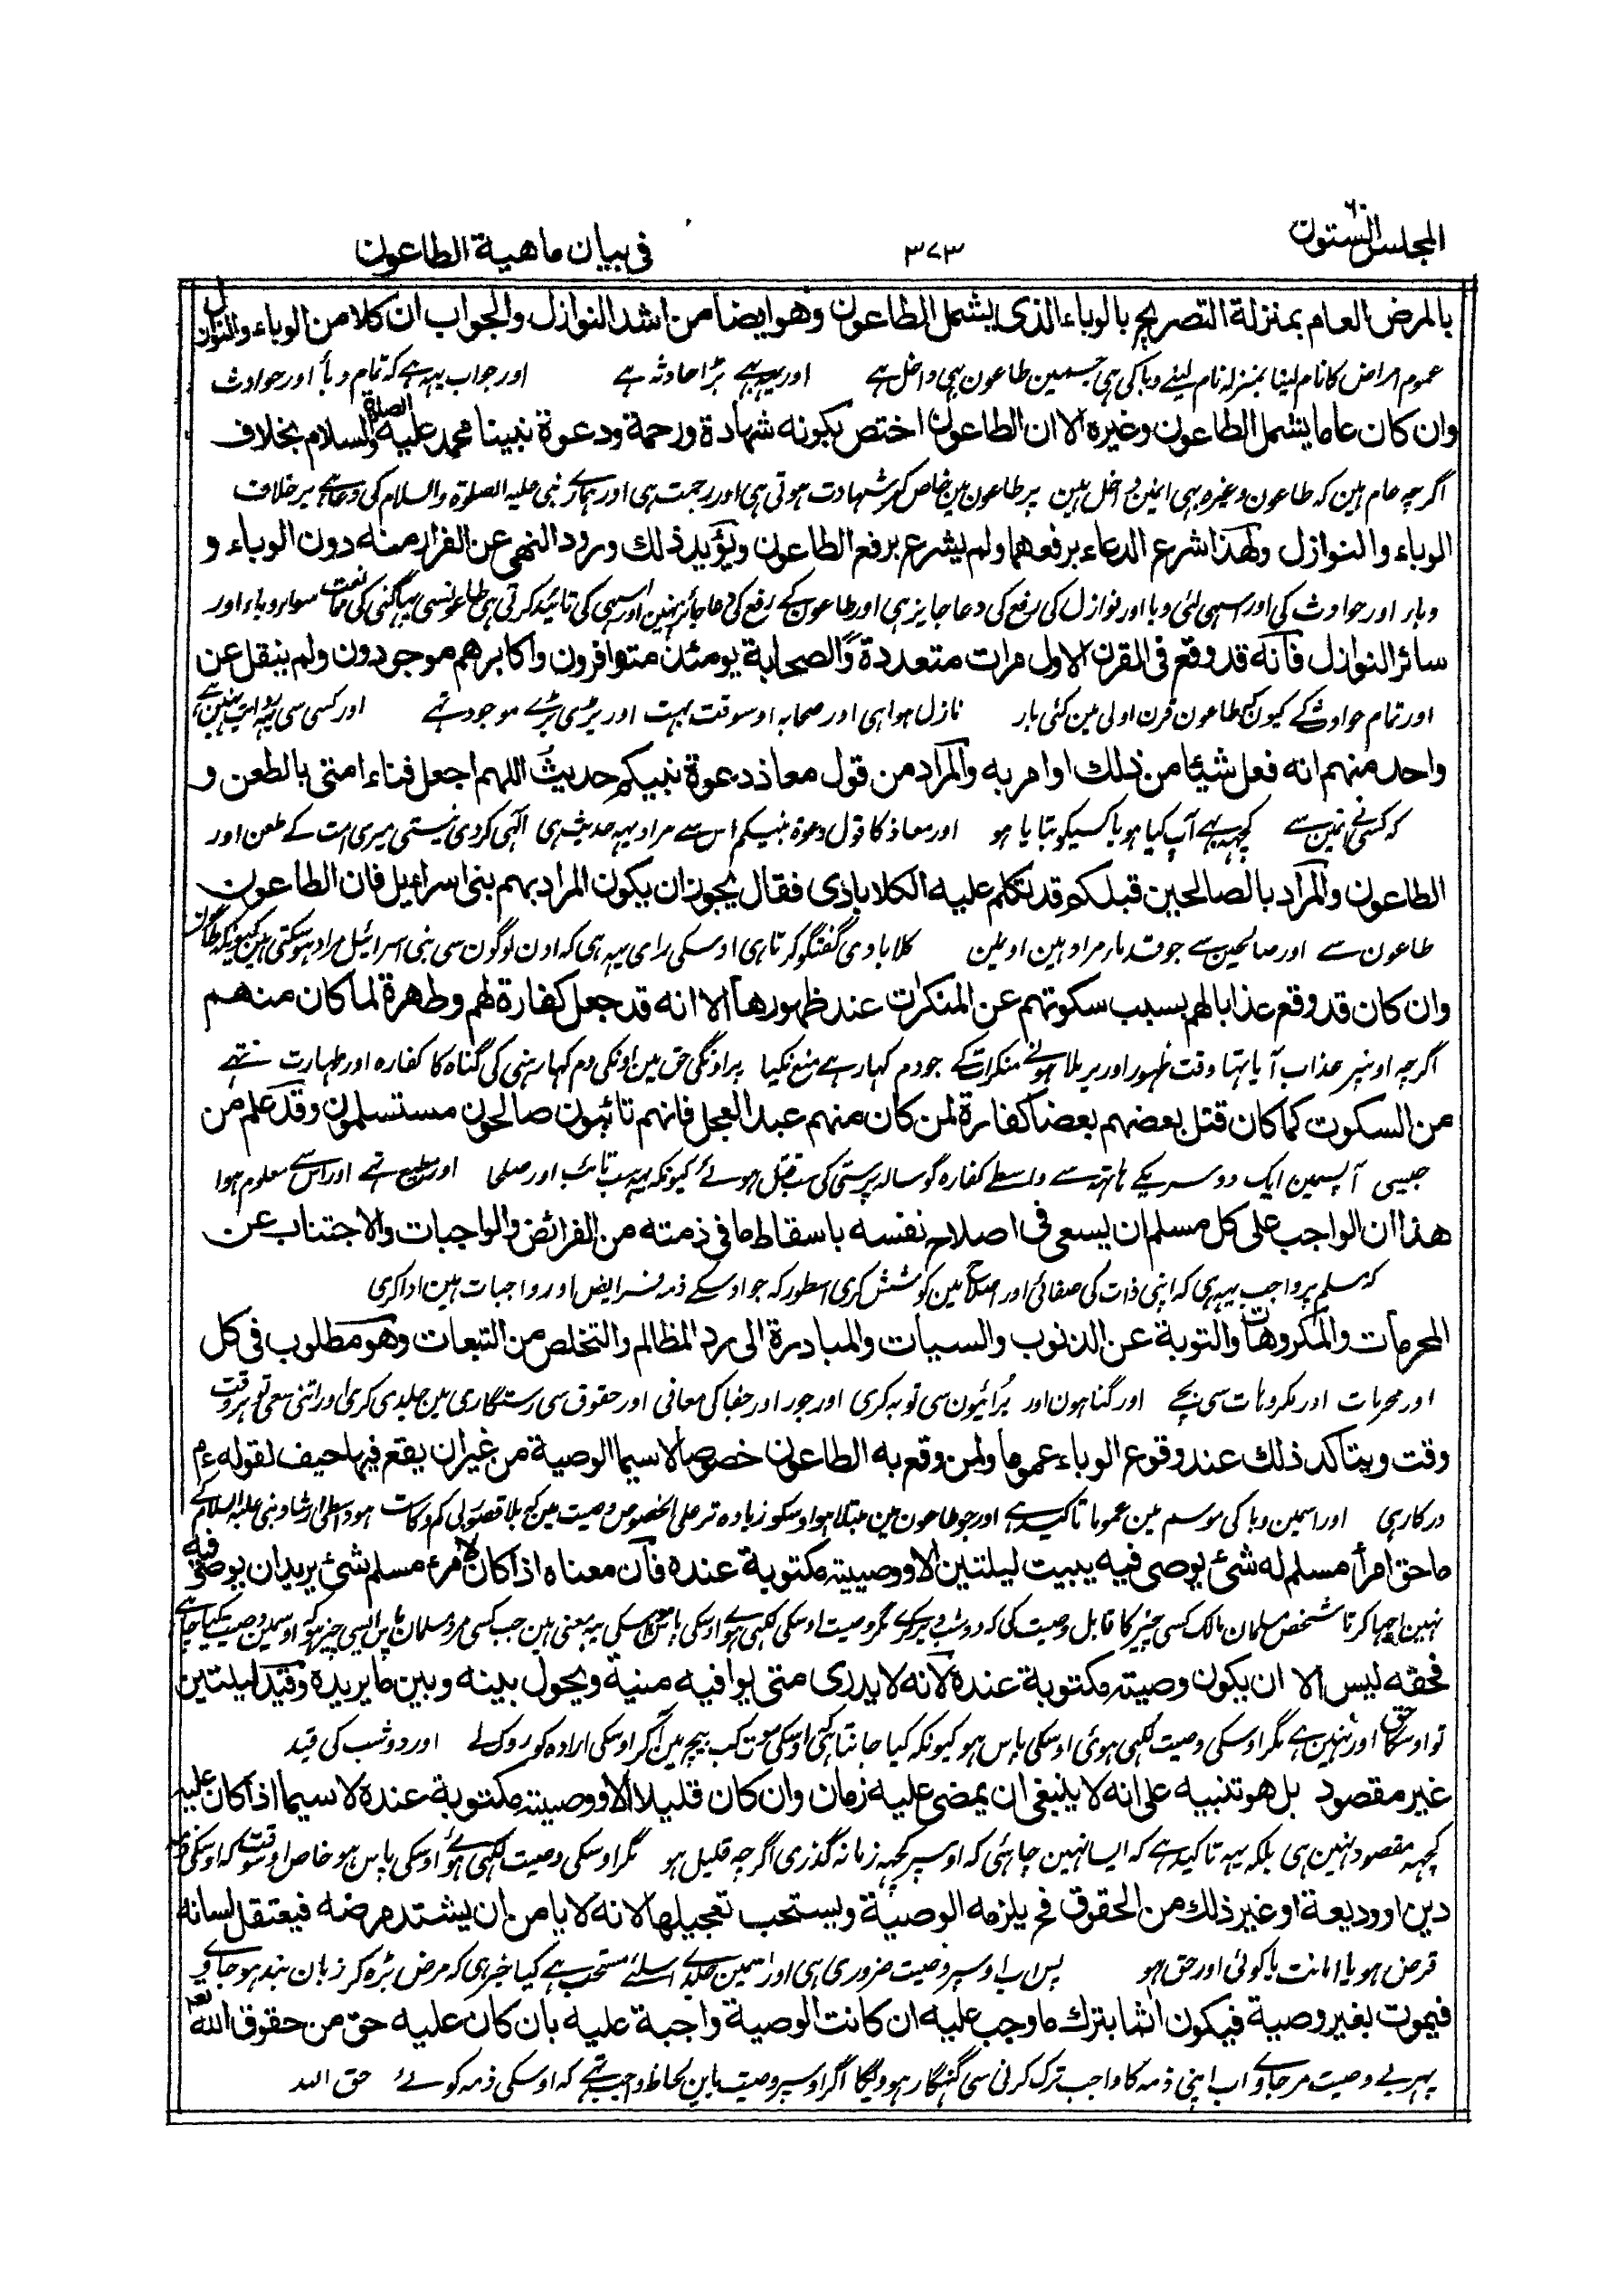 المجلس الستون ٦٠
٣٧٣
فی بیان ماهیة الطاعون
بالمرض العام بمنزلة التصریح بالوباء الذی یشمل الطاعون وهو ایضا من اشد النوازل والجواب ان کلا من الوباء والنوازل
عموم امراض کا نام لینا بمنزله نام لینے وبا کی ہی جسمین طاعون بہی داخل ہے اور یہہ بہے بڑا حادثہ ہے اور جواب یہہ ہے کہ تمام وبأ اور حوادث
وان کان عاما یشمل الطاعون وغیره الا ان الطاعون اختص بکونه شهادة ورحمة ودعوة نبینا محمد علیه الصلوة والسلام بخلاف
اگرچہ عام ہین کہ طاعون وغیرہ بہی انمین داخل ہین پر طاعون مین خاص کر شہادت ہوتی ہی اور رحمت ہی اور ہمارے نبی علیہ الصلوة والسلام کی دعا ہے برخلاف
الوباء والنوازل ولهذا شرع الدعاء برفعهما ولم یشرع برفع الطاعون ویؤید ذلك ورود النهی عن الفرار منه دون الوباء و
وبار اور حوادث کی اور اسیہی لئی وبا اور نوازل کی رفع کی دعا جایز ہی اور طاعون کے رفع کی دعا جائز نہین اور اسیہی کی تائید کرتی ہی طاعونسی بہاگنی کی ممانعت سوای وباء اور
سائر النوازل فانه قد وقع فی القرن الاول مرات متعددة والصحابة یومئذ متوافرون واکابرهم موجودون ولم ینقل عن
اور تمام حوادث کے کیونکہ طاعون قرن اولی مین کئی بار نازل ہوا ہی اور صحابہ اوسوقت بہت اور بڑی بڑے موجود تہے اور کسی سی یہہ روایت نہین ہے
واحد منهم انه فعل شیئا من ذلك او امر به والمراد من قول معاذ دعوة نبیکم حدیث اللهم اجعل فناء امتی بالطعن و
کہ کسی نے انمین سے کچہہ بہے آپ کیا ہو یا کسیکو بتایا ہو اور معاذ کا قول دعوة نبیکم اس سے مراد یہہ حدیث ہی الٰہی کر دی نیستی میری امت کے طعن اور
الطاعون والمراد بالصالحین قبلکم قد تکلم علیه الکلاباذی فقال یجوز ان یکون المراد بهم بنی اسرائیل فان الطاعون
طاعون سے اور صالحین سے جو قدمار مراد ہین اونمین کلابادی گفتگو کرتا ہی اوسکی رای یہہ ہی کہ اون لوگون سی بنی اسرائیل مراد ہو سکتی ہین کیونکہ طاعون
وان کان قد وقع عذابا لهم بسبب سکوتهم عن المنکرات عند ظهورها الا انه قد جعل کفارة لهم وطهرة لما کان منهم
اگرچہ اونپر عذاب آیا تہا وقت ظہور اور برملا ہونے منکرات کے جو دم کہا رہے منع نکیا پر اونکی حق مین اونکی دم کہا رہنی کی گناہ کا کفارہ اور طہارت تہے
من السکوت کما کان قتل بعضهم بعضا کفارة لمن کان منهم عبد العجل فانهم تائبون صالحون مستسلمون وقد علم من
جیسی آپسمین ایک دوسریکے ہاتہہ سے واسطے کفارہ گوسالہ پرستی کی سب قتل ہوئے کیونکہ یہہ سب تائب اور صلحا اور مطیع تہے اور اس سے معلوم ہوا
هذا ان الواجب علی کل مسلم ان یسعی فی اصلاح نفسه باسقاط ما فی ذمته من الفرائض والواجبات والاجتناب عن
کہ مسلم پر واجب یہہ ہی کہ اپنی ذات کی صفائی اور اصلاح مین کوشش کری اسطور کہ جو اوسکے ذمہ فرایض اور واجبات ہین ادا کری
المحرمات والمکروهات والتوبة عن الذنوب والسیات والمبادرة الی رد المظالم والتخلص من التبعات وهو مطلوب فی کل
اور محرمات اور مکروہات سی بچے اور گناہون اور بُرائیون سی توبہ کری اور جور اور جفا کی معافی اور حقوق سی رستگاری مین جلدی کری اور اتنی سعی تو ہر وقت
وقت ویتاکد ذلك عند وقوع الوباء عموما ولمن وقع به الطاعون خصوصا لاسیما الوصیة من غیر ان یقع فیها حیف لقوله ءم
درکار ہی اور اسمین وبا کی موسم مین عموما تاکید ہے اور جو طاعون مین مبتلا ہو اوسکو زیادہ تر علی الخصوص وصیت مین کہ بلا قصور بی کم وکاست ہو واسطی ارشاد نبی علیہ السلام کے
ما حق امرأ مسلم له شئ یوصی فیه یبیت لیلتین الا ووصیته مکتوبة عنده فان معناه اذا کان لامرء مسلم شئ یرید ان یوصی فیه
نہین اچہا کرتا شخص مسلمان مالک کسی چیز کا قابل وصیت کی کہ دو شب دیر کرے مگر وصیت اوسکی لکہی ہے ہو اوسکی پاس اسکی یہہ معنی ہین جب کسی مرد مسلمان پاس ایسی چیز ہو کہ اوسمین وصیت کیا چاہے
فحقه لیس الا ان یکون وصیته مکتوبة عنده لانه لا یدری متی یوافیه منیة ویحول بینه وبین ما یریده وقید لیلتین
تو اوسکا حق اور نہین ہے مگر اوسکی وصیت لکہی ہوئی اوسکی پاس ہو کیونکہ کیا جانتا ہی کہ اوسکی موت کب بیچ مین آکر اوسکی ارادہ کو روک لے اور دو شب کی قید
غیر مقصود بل هو تنبیه علی انه لا ینبغی ان یمضی علیه زمان وان کان قلیلا الا ووصیته مکتوبة عنده لاسیما اذا کان علیه
کچہہ مقصود نہین ہی بلکہ یہہ تاکید ہے کہ ایسا نہین چاہئی کہ اوسپر کچہہ زمانہ گذری اگرچہ قلیل ہو مگر اوسکی وصیت لکہی ہے ہوئے اوسکی پاس ہو خاص اوسوقت کہ اوسکی ذمہ
دین او ودیعة او غیر ذلك من الحقوق فح یلزمه الوصیة ویستحب تعجیلها لانه لا یامن ان یشتد مرضه فیعتقل لسانه
قرض ہو یا امانت یا کوئی اور حق ہو پس اب اوسپر وصیت ضروری ہی اور اسمین جلدے اسلئے مستحب ہے کیا خبر ہی کہ مرض بڑہ کر زبان بند ہو جاوے
فیموت بغیر وصیة فیکون اثما بترك ما وجب علیه ان کانت الوصیة واجبة علیه بان کان علیه حق من حقوق الله تعه
پہر بے وصیت مر جاوے اب اپنی ذمہ کا واجب ترک کرنی سی گنہگار ہوویگا اگر اوسپر وصیت باین لحاظ واجب تہے کہ اوسکی ذمہ کوئے حق اللہ